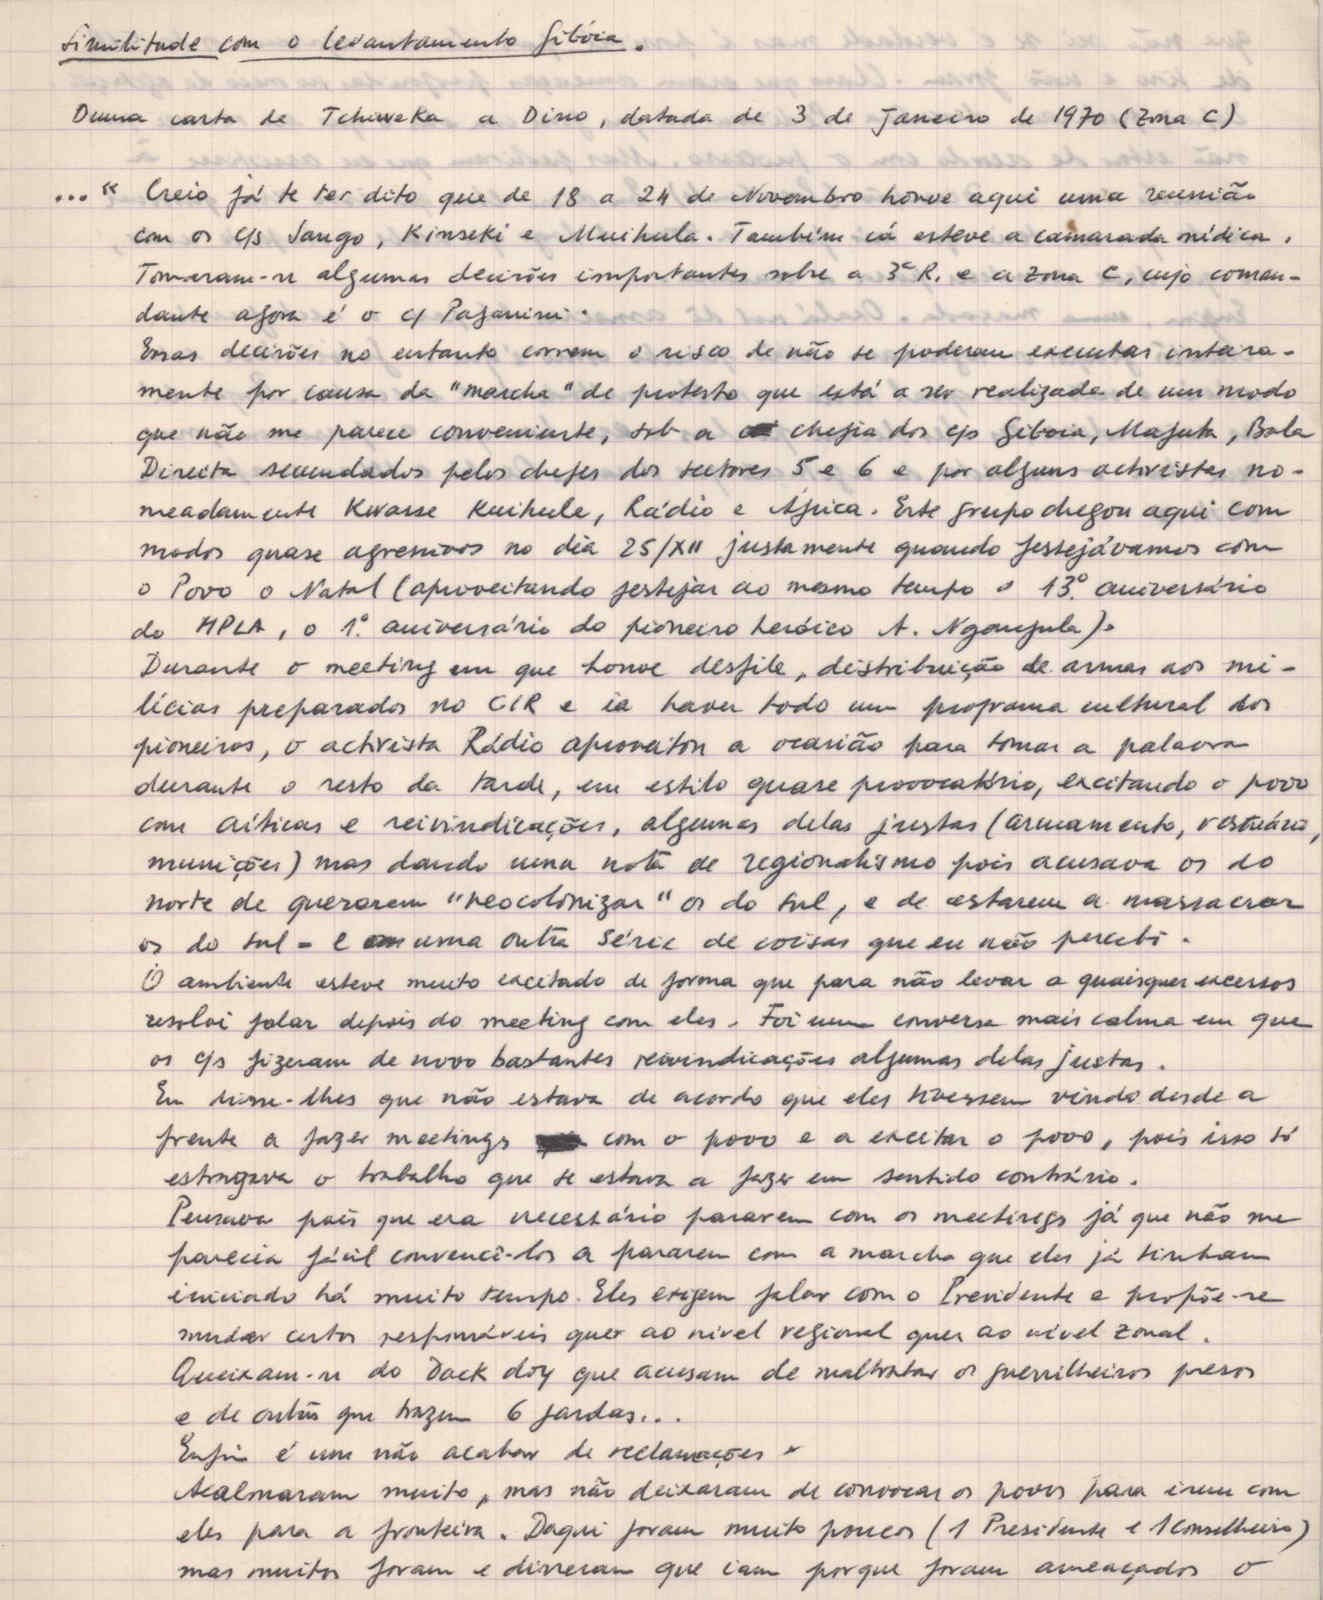 Similitude com o levantamento Gibóia.
Duma carta de Tchiweka a Dino, datada de 3 de Janeiro de 1970 (Zona C)
..." Creio já te ter dito que de 18 a 24 de Novembro houve aqui uma reunião
com os c/s Jango, Kinseki e Muihula. Também cá esteve a camarada médica.
Tomaram-se algumas decisões importantes sobre a 3ª R. e a Zona C, cujo coman-
dante agora é o c/ Paganini.
Essas decisões no entanto correm o risco de não se poderem executar inteira-
mente por causa da "marcha" de protesto que está a ser realizada de um modo
que não me parece conveniente, sob a chefia dos c/s Gibóia, Mafuta, Bala
Direita secundados pelos chefes dos sectores 5 e 6 e por alguns activistas no-
meadamente Kwasse Kuihule, Rádio e África. Este grupo chegou aqui com
modos quase agressivos no dia 25/XII justamente quando festejávamos com
o Povo o Natal (aproveitando festejar ao mesmo tempo o 13º aniversário
do MPLA, o 1º aniversário do pioneiro heróico A. Ngangula).
Durante o meeting em que houve desfile, distribuição de armas aos mi-
lícias preparados no CIR e ia haver todo um programa cultural dos
pioneiros, o activista Rádio aproveitou a ocasião para tomar a palavra
durante o resto da tarde, em estilo quase provocatório, excitando o povo
com críticas e reivindicações, algumas delas justas (armamento, vestuário,
munições) mas dando uma nota de regionalismo pois acusava os do
norte de quererem "neocolonizar" os do sul, e de estarem a massacrar
os do sul - e uma outra série de coisas que eu não percebi.
O ambiente esteve muito excitado de forma que para não levar a quaisquer excessos
resolvi falar depois do meeting com eles. Foi uma conversa mais calma em que
os c/s fizeram de novo bastantes reivindicações algumas delas justas.
Eu disse-lhes que não estava de acordo que eles tivessem vindo desde a
frente a fazer meetings com o povo e a excitar o povo, pois isso só
estragava o trabalho que se estava a fazer em sentido contrário.
Pensava pois que era necessário pararem com os meetings já que não me
parecia fácil convencê-los a pararem com a marcha que eles já tinham
iniciado há muito tempo. Eles exigem falar com o Presidente e propõe-se
mudar certos responsáveis quer ao nível regional quer ao nível zonal.
Queixam-se do Dack doy que acusam de maltratar os guerrilheiros presos
e de outros que trazem 6 fardas...
Enfim é um não acabar de reclamações.
Acalmaram muito, mas não deixaram de convocar os povos para irem com
eles para a fronteira. Daqui foram muito poucos (1 Presidente e 1 Conselheiro)
mas muitos foram e disseram que iam porque foram ameaçados o